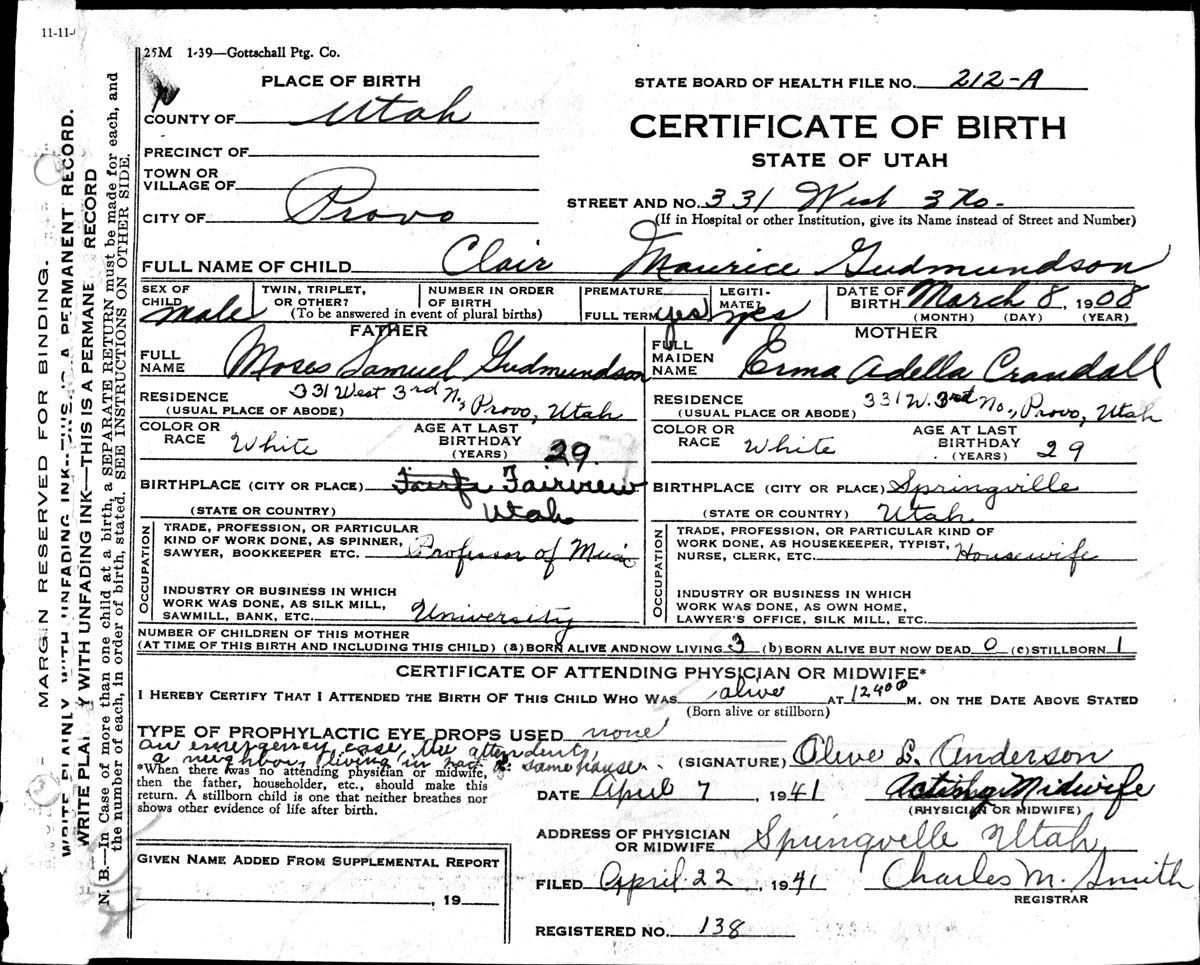 11-11-
25M 1-39—Gottschall Ptg. Co.
PLACE OF BIRTH
STATE BOARD OF HEALTH FILE NO. 212-A
COUNTY OF Utah
CERTIFICATE OF BIRTH
STATE OF UTAH
PRECINCT OF
TOWN OR
VILLAGE OF
CITY OF Provo
STREET AND NO. 331 West 3 No.
(If in Hospital or other Institution, give its Name instead of Street and Number)
FULL NAME OF CHILD Clair Maurice Gudmundson
SEX OF CHILD male
TWIN, TRIPLET, OR OTHER?
NUMBER IN ORDER OF BIRTH
(To be answered in event of plural births)
PREMATURE
FULL TERM yes
LEGITI-
MATE? yes
DATE OF BIRTH March 8, 1908
(MONTH) (DAY) (YEAR)
FATHER
FULL NAME Moses Samuel Gudmundson
RESIDENCE 331 West 3rd N., Provo, Utah
(USUAL PLACE OF ABODE)
COLOR OR RACE White
AGE AT LAST BIRTHDAY (YEARS) 29.
BIRTHPLACE (CITY OR PLACE) Fairf Fairview
(STATE OR COUNTRY) Utah
OCCUPATION
TRADE, PROFESSION, OR PARTICULAR
KIND OF WORK DONE, AS SPINNER,
SAWYER, BOOKKEEPER ETC. Professor of Music
INDUSTRY OR BUSINESS IN WHICH
WORK WAS DONE, AS SILK MILL,
SAWMILL, BANK, ETC. University
MOTHER
FULL MAIDEN NAME Erma Adella Crandall
RESIDENCE 331 W. 3rd No., Provo, Utah
(USUAL PLACE OR ABODE)
COLOR OR RACE White
AGE AT LAST BIRTHDAY (YEARS) 29
BIRTHPLACE (CITY OR PLACE) Springville
(STATE OR COUNTRY) Utah
OCCUPATION
TRADE, PROFESSION, OR PARTICULAR KIND OF
WORK DONE, AS HOUSEKEEPER, TYPIST,
NURSE, CLERK, ETC. Housewife
INDUSTRY OR BUSINESS IN WHICH
WORK WAS DONE, AS OWN HOME,
LAWYER'S OFFICE, SILK MILL, ETC.
NUMBER OF CHILDREN OF THIS MOTHER
(AT TIME OF THIS BIRTH AND INCLUDING THIS CHILD) (a) BORN ALIVE AND NOW LIVING 3 (b) BORN ALIVE BUT NOW DEAD 0 (c) STILLBORN 1
CERTIFICATE OF ATTENDING PHYSICIAN OR MIDWIFE*
I HEREBY CERTIFY THAT I ATTENDED THE BIRTH OF THIS CHILD WHO WAS alive AT 12 40 M. ON THE DATE ABOVE STATED
(Born alive or stillborn)
TYPE OF PROPHYLACTIC EYE DROPS USED none
an emergency case, the attendent,
a neighbor, living in same house.
(SIGNATURE) Olive L. Anderson
*When there was no attending physician or midwife,
then the father, householder, etc., should make this
return. A stillborn child is one that neither breathes nor
shows other evidence of life after birth.
DATE April 7, 1941 Acting Midwife
(PHYSICIAN OR MIDWIFE)
ADDRESS OF PHYSICIAN
OR MIDWIFE Springville Utah
GIVEN NAME ADDED FROM SUPPLEMENTAL REPORT
, 19
FILED April 22, 1941 Charles M. Smith
REGISTRAR
REGISTERED NO. 138
MARGIN RESERVED FOR BINDING.
WRITE PLAINLY WITH UNFADING INK—THIS IS A PERMANENT RECORD.
WRITE PLAI Y WITH UNFADING INK—THIS IS A PERMANE RECORD
N. B.—In Case of more than one child at a birth, a SEPARATE RETURN must be made for each, and
the number of each, in order of birth, stated. SEE INSTRUCTIONS ON OTHER SIDE.